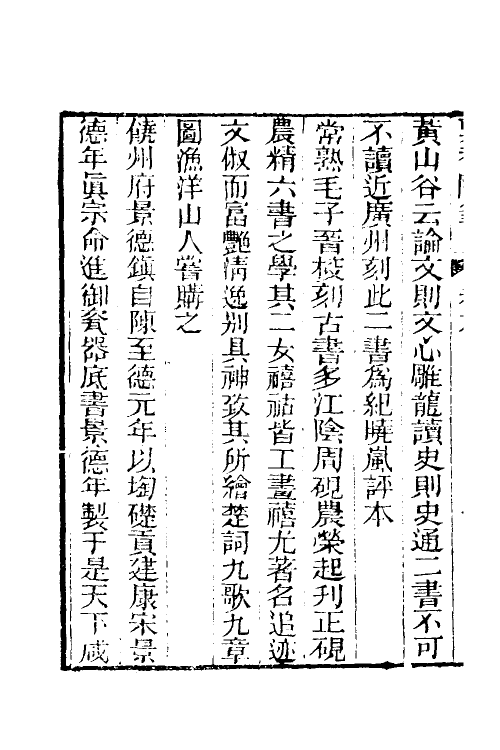 黃山谷云論文則文心雕龍讀史則史通二書不可
不讀近廣州刻此二書爲紀曉嵐評本
常熟毛子晉校刻古書多江陰周硯農榮起刊正硯
農精六書之學其二女禧祜皆工畫禧尤著名追迹
文俶而富艷淸逸别具神致其所繪楚詞九歌九章
圖漁洋山人嘗購之
饒州府景德鎭自陳至德元年以埳礎貢建康宋景
德年眞宗命進御瓷器底書景德年製于是天下咸